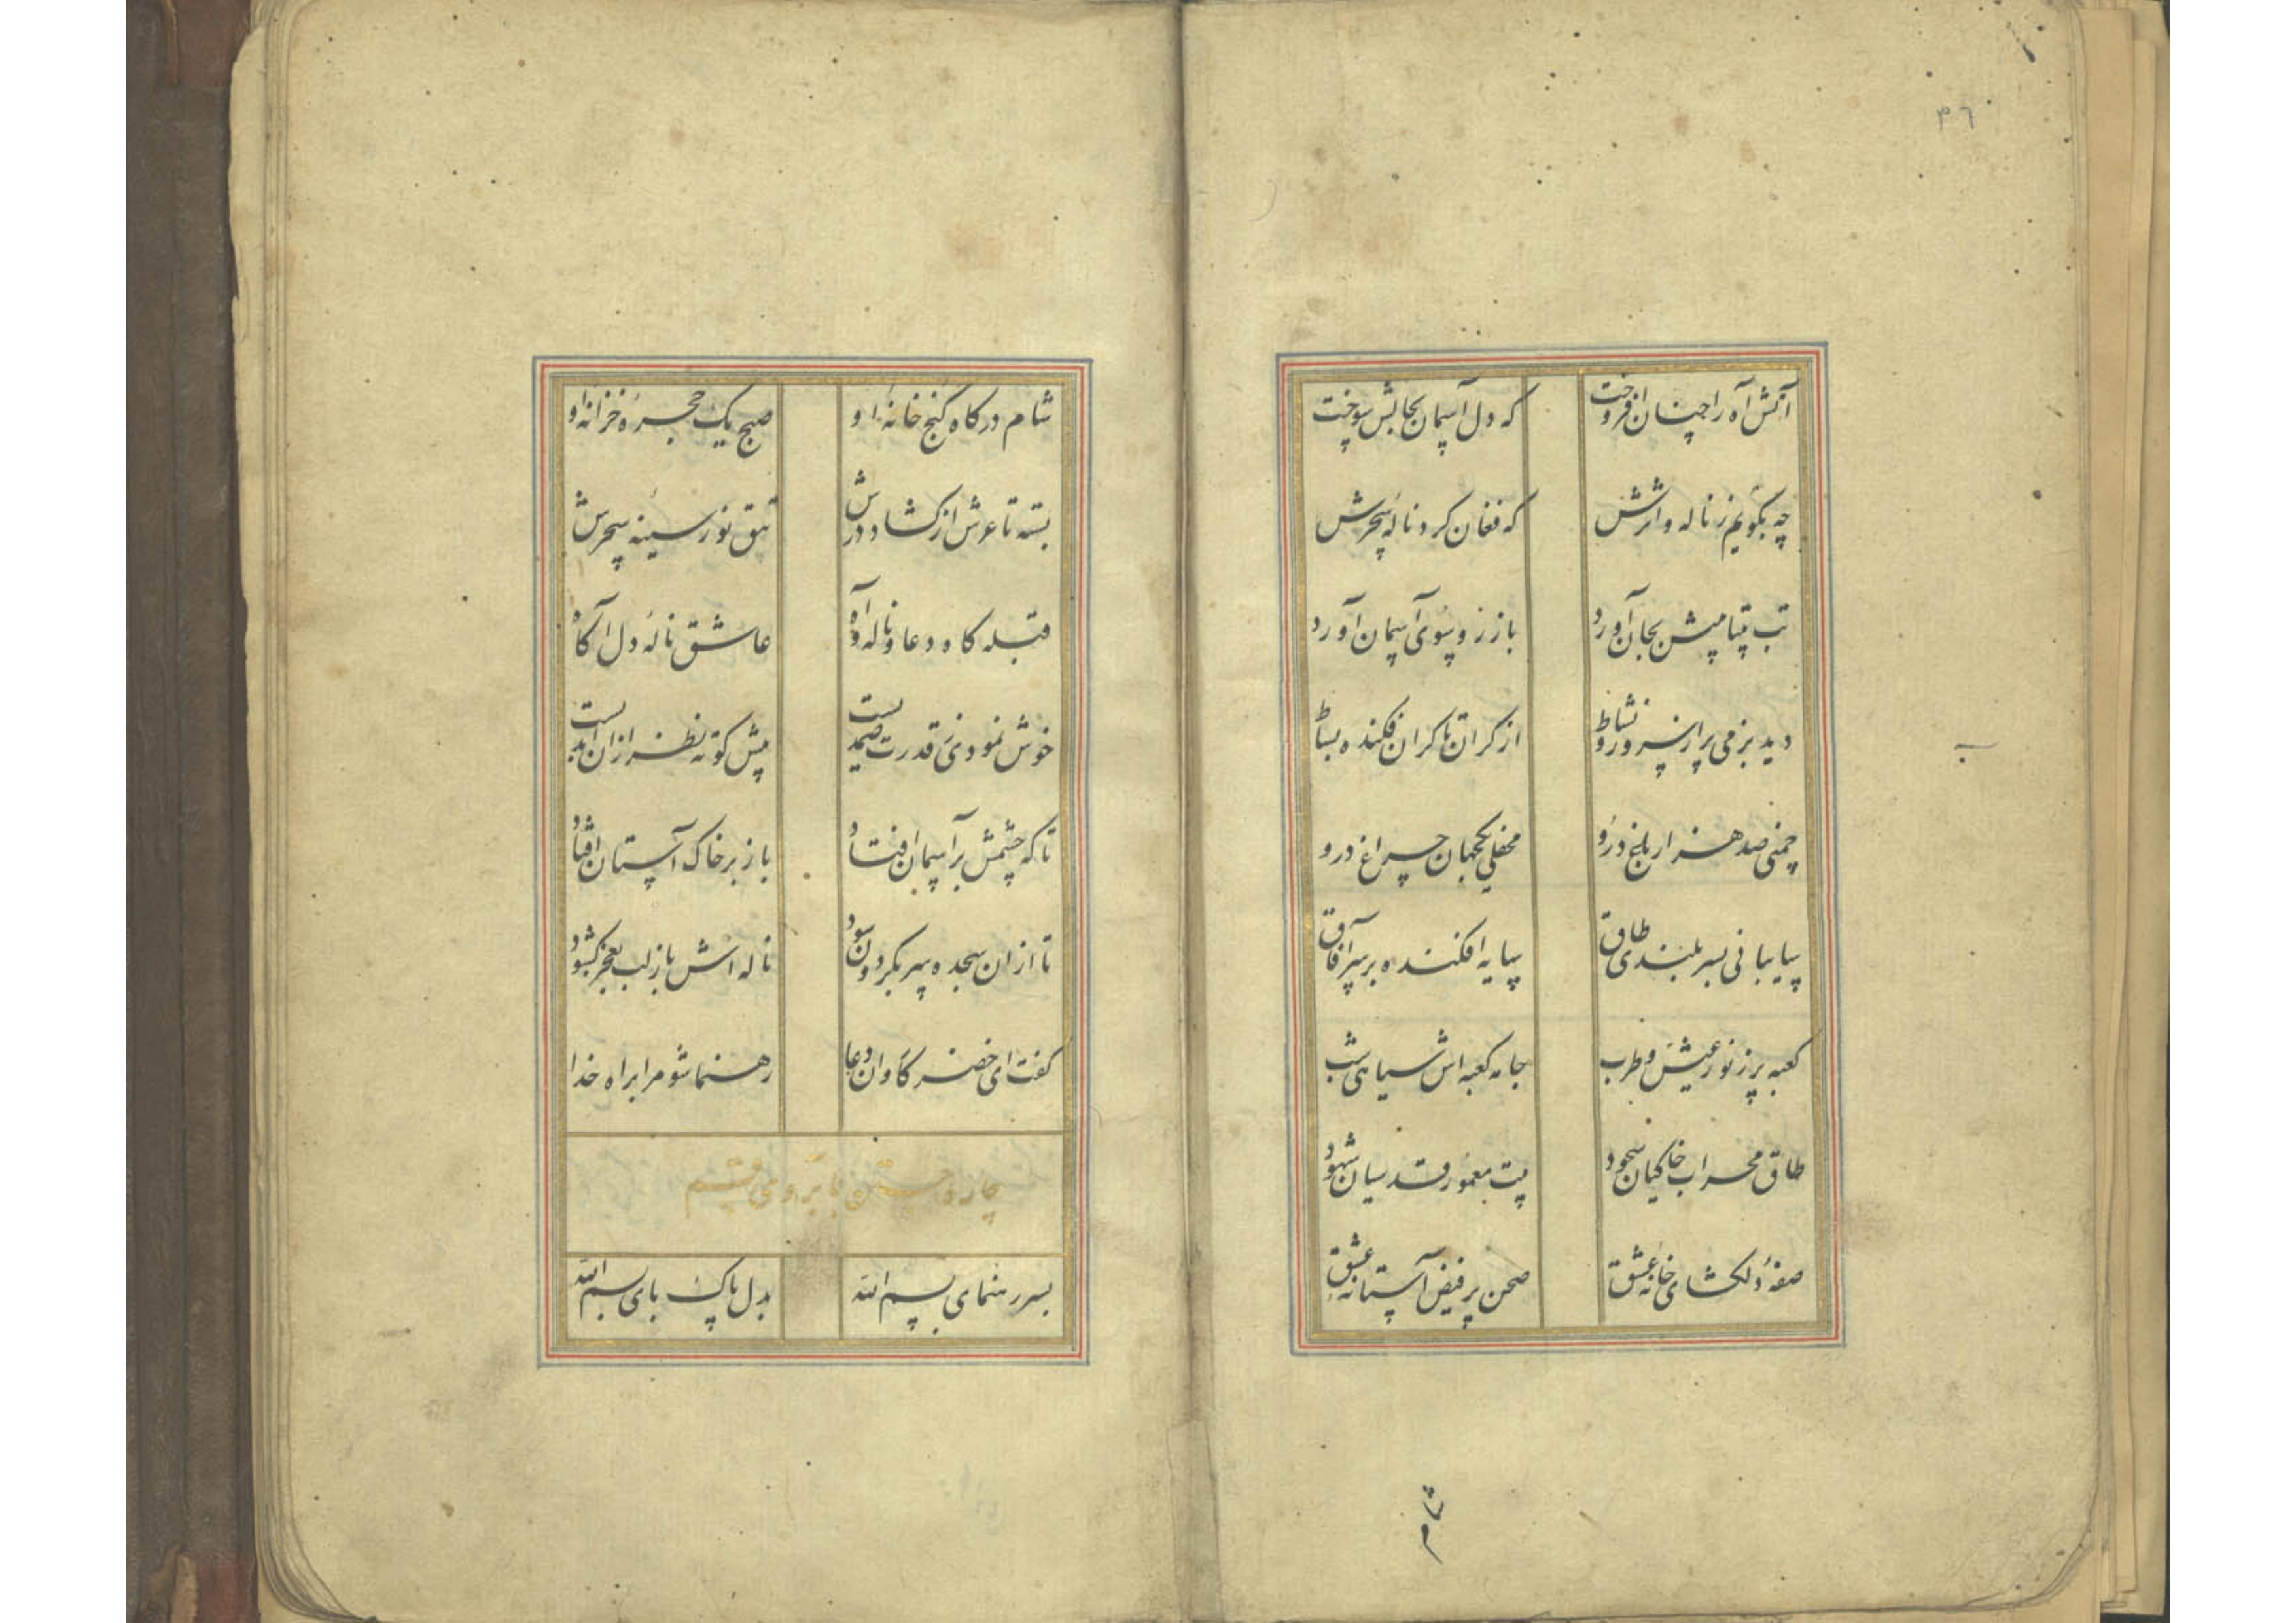 ۳۶
آتش آه را چنان افروخت که دل آسمان بحالش سوخت
چه بگویم ز ناله و اثرش که فغان کرد ناله سحرش
تب بجان آورد باز رو سوی آسمان آورد
دید بزمی پر از سرور و نشاط از کران تا کران فکنده بساط
چمنی صد هزار باغ درو محفلی یکجهان چراغ درو
سایبانی بسر بلندی طاق سایه افکنده بر سر آفاق
کعبه پر ز نور عیش و طرب جامه کعبه اش سیاهی شب
طاق محراب خاکیان سجود بیت معمور قدسیان شهود
صفهٔ دلکشای خانه عشق صحن پر فیض آستانه عشق
شام
شام درکاه کنج خانهٔ او صبح یک حجرهٔ خزانهٔ او
بسته تا عرش از کشاد درش تتق نور سینه سحرش
قبله کاه دعا و ناله و آه عاشق نالهٔ دل آکاه
خوش نمودی ز قدرت صمدیست پیش کوته نظر از ان ابدیست
تا که چشمش بر آسمان افتاد باز بر خاک آستان افتاد
تا ازان سجده سر بکردون سود ناله اش باز لب بعجز کشود
کفت ای خضر کاروان دعا رهنما شو مرا براه خدا
بسر رهنمای بسم الله بدل پاک بای بسم الله